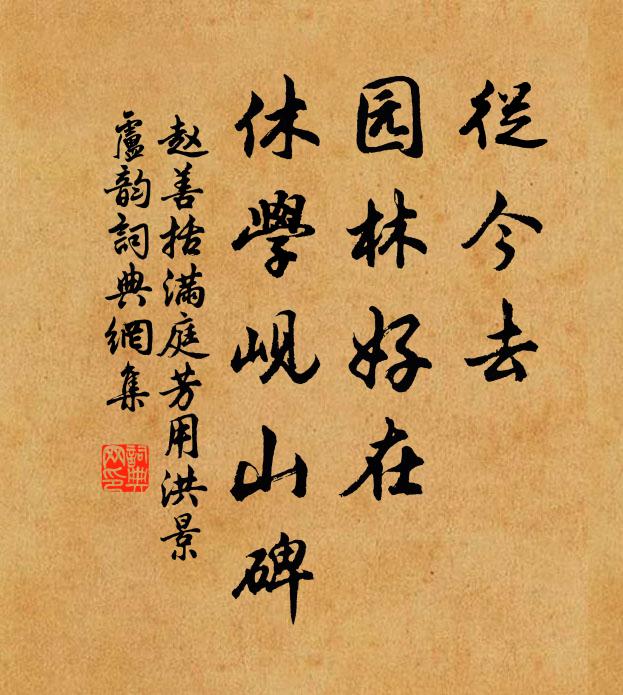 從今去
园林好在
休學峴山碑
赵善括满庭芳用洪景
盧韵詞典網集
詞典
网印